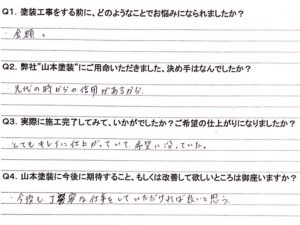 Q1. 塗装工事をする前に、どのようなことでお悩みになられましたか？
・金額。
Q2. 弊社"山本塗装"にご用命いただきました、決め手はなんでしたか？
・先代の時からの信用があるから
Q3. 実際に施工完了してみて、いかがでしたか？ご希望の仕上がりになりましたか？
とてもキレイに仕上がっていて、希望に沿っていた。
Q4. 山本塗装に今後に期待すること、もしくは改善して欲しいところは御座いますか？
・今後も丁寧な仕事をしていただければ良いと思う。